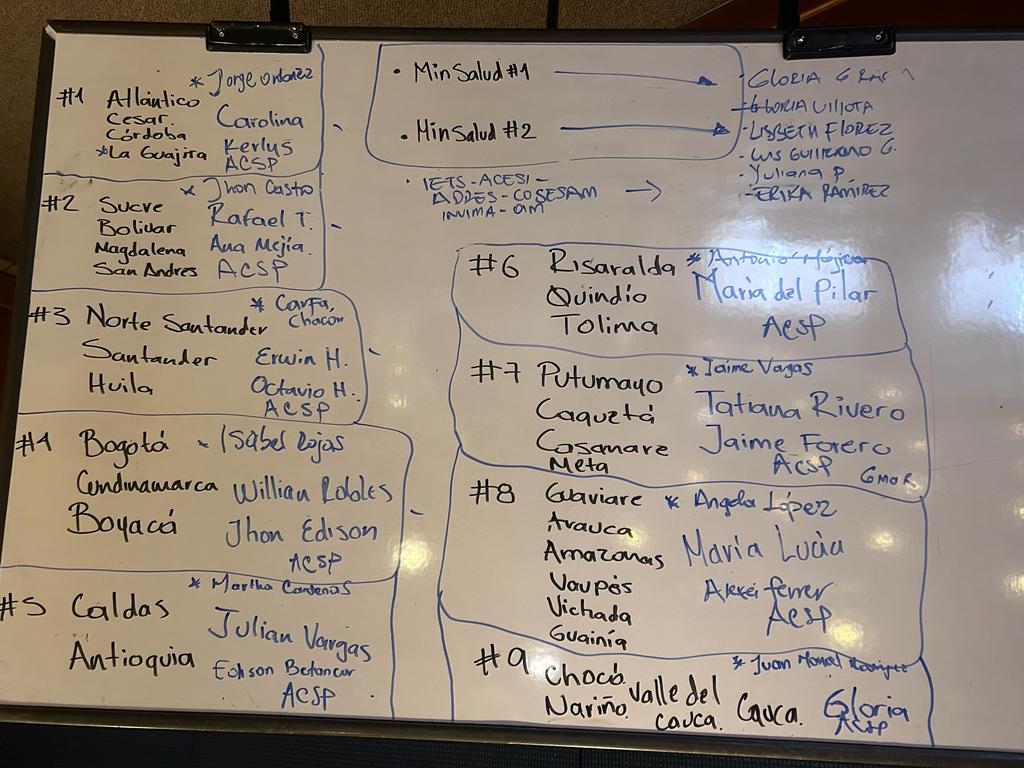 * Jorge Ordoñez
#1 Atlántico
Cesar. Carolina
Córdoba Kerlys
*La Guajira ACSP
* Jhon Castro
#2 Sucre Rafael T.
Bolivar Ana Mejía.
Magdalena ACSP
San Andres
#3 Norte Santander * Carfa, Chacon
Santander Erwin H.
Huila Octavio H.
ACSP
#4 Bogotá * Isabel Rojas
Cundinamarca Willian Robles
Boyacá Jhon Edison
ACSP
* Martha Cardenas
#5 Caldas Julian Vargas
Antioquia Edison Betancur
ACSP
• MinSalud #1
• MinSalud #2
• IETS - ACESI -
ADRES - COSESAM
INVIMA -
- GLORIA
- GLORIA VILLOTA
- LISBETH FLOREZ
- LUIS GUILLERMO G.
- Yuliana P.
- ERIKA RAMÍREZ
#6 Risaralda * Antonio
Quindío Maria del Pilar
Tolima ACSP
#7 Putumayo * Jaime Vagas
Caquetá Tatiana Rivero
Casanare Jaime Forero
Meta ACSP
#8 Guaviare * Angela López
Arauca
Amazonas Maria Lucia
Vaupés Alexei ferrer
Vichada ACSP
Guainía
#9 Chocó * Juan Manuel Rodriguez
Nariño. Valle del cauca. Cauca. Gloria
ACSP